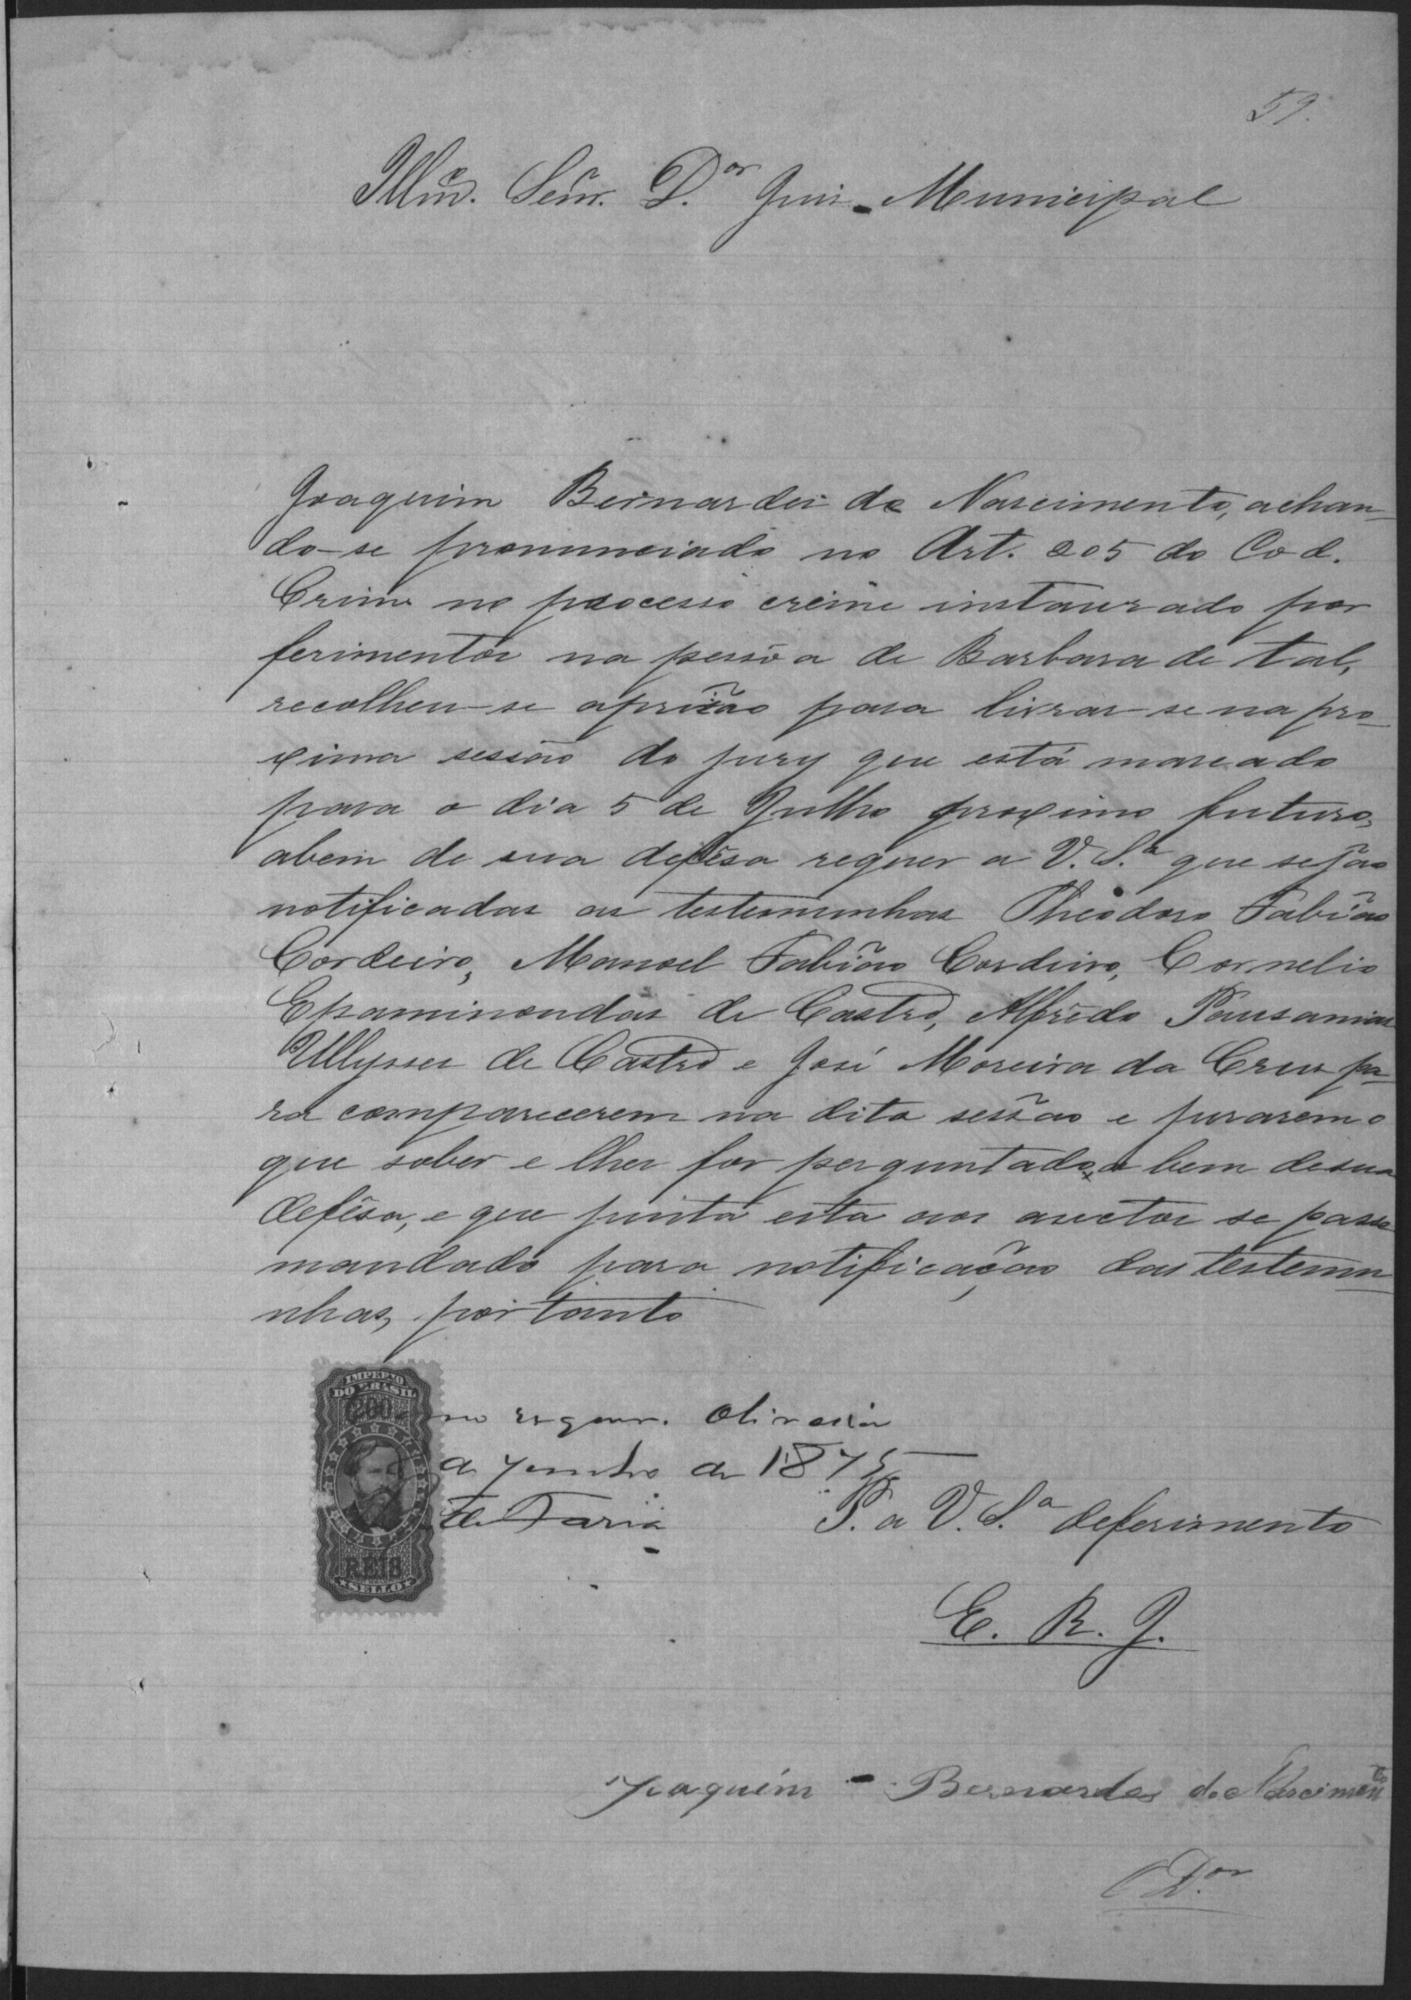 59.
Illmo. Senr. Dor Juis Municipal
Joaquim Bernardes do Nascimento, achan-
do-se pronunciado no Art. 205 do Cod.
Crime no processo crime instaurado por
ferimentos na pessôa de Barbara de tal,
recolheu-se a prizão para livrar-se na pro-
xima sessão do jury que está marcado
para o dia 5 de Julho proximo futuro,
abem de sua defêsa requer a V. S.ª que sejão
notificadas as testemunhas Theodoro Fabião
Cordeiro, Manoel Fabião Cordeiro, Cornelio
Epaminondas de Castro, Alfrêdo Pausanias
Ullysses de Castro e José Moreira da Crus pa-
ra comparecerem na dita sessão e jurarem o
que saber e lhes for perguntado a bem de sua
defêsa, e que junta esta aos auctos se passe
mandado para notificação das testemu-
nhas, portanto
IMPERIO
DO BRASIL
200
REIS
SELLO
mo requer. Oliveira
de Junho de 1875
de Faria
P. a V. S.ª deferimento
E. R. J.
Joaquim - Bernardes do Nascimento
Dor